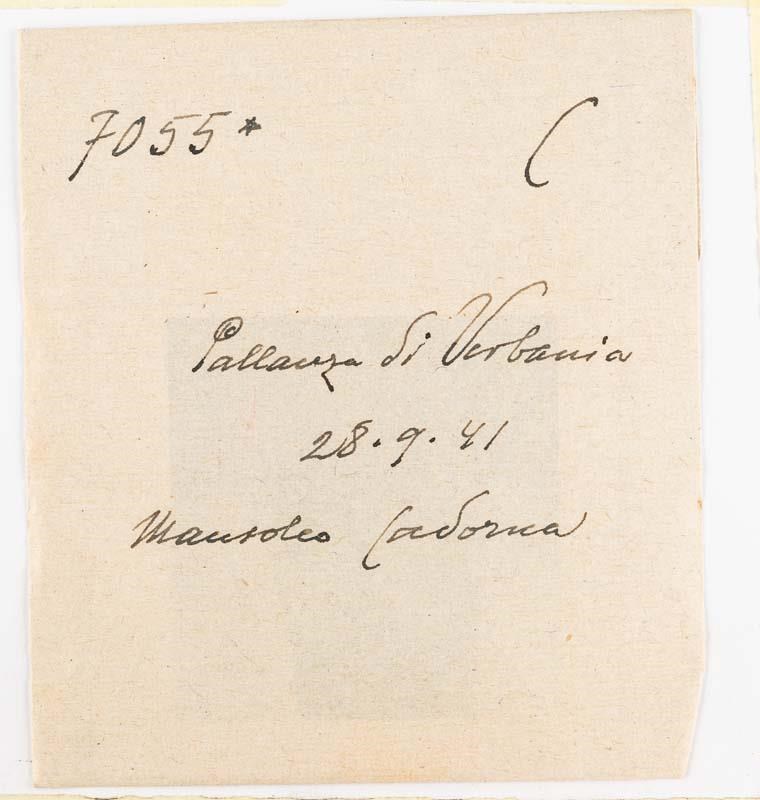 7055* C
Pallanza di Verbania
28.9.41
Mausoleo Cadorna